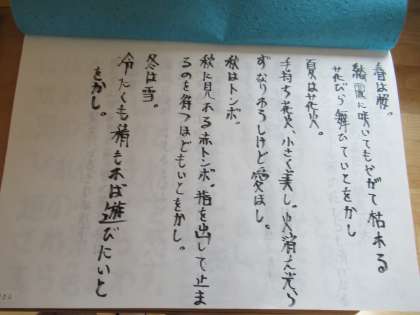 春は桜。
綺麗に咲いてもやがて枯木る
花びら舞ひていとをかし
夏は花火。
手持ち花火、小さく美し。火消え光ら
ずなりわろしけど愛ほし。
秋はトンボ。
秋に見れる赤トンボ。指を出して止ま
るのを待つほどもいとをかし。
冬は雪。
冷たくも積もれば遊びたいと
をかし。